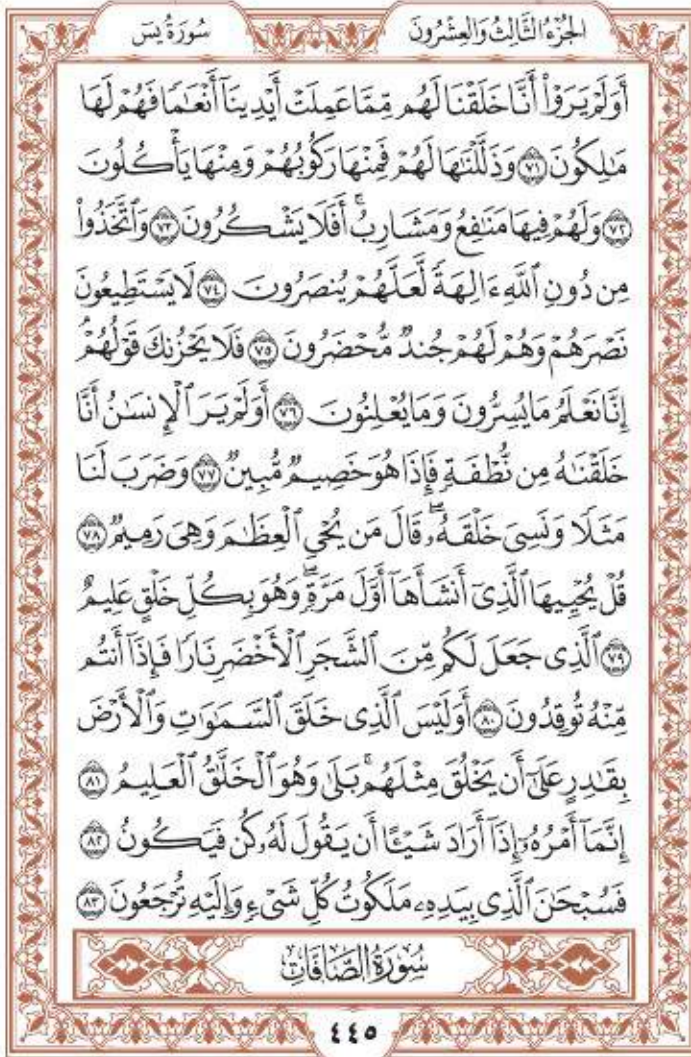 الجُزْءُ الثَّالِثُ وَالعِشْرُونَ
سُورَةُ يسٓ
أَوَلَمْ يَرَوْا۟ أَنَّا خَلَقْنَا لَهُم مِّمَّا عَمِلَتْ أَيْدِينَآ أَنْعَٰمًا فَهُمْ لَهَا
مَٰلِكُونَ ٧١ وَذَلَّلْنَٰهَا لَهُمْ فَمِنْهَا رَكُوبُهُمْ وَمِنْهَا يَأْكُلُونَ
٧٢ وَلَهُمْ فِيهَا مَنَٰفِعُ وَمَشَارِبُۚ أَفَلَا يَشْكُرُونَ ٧٣ وَٱتَّخَذُوا۟
مِن دُونِ ٱللَّهِ ءَالِهَةً لَّعَلَّهُمْ يُنصَرُونَ ٧٤ لَا يَسْتَطِيعُونَ
نَصْرَهُمْ وَهُمْ لَهُمْ جُندٌ مُّحْضَرُونَ ٧٥ فَلَا يَحْزُنكَ قَوْلُهُمْۘ
إِنَّا نَعْلَمُ مَا يُسِرُّونَ وَمَا يُعْلِنُونَ ٧٦ أَوَلَمْ يَرَ ٱلْإِنسَٰنُ أَنَّا
خَلَقْنَٰهُ مِن نُّطْفَةٍ فَإِذَا هُوَ خَصِيمٌ مُّبِينٌ ٧٧ وَضَرَبَ لَنَا
مَثَلًا وَنَسِىَ خَلْقَهُۥۖ قَالَ مَن يُحْىِ ٱلْعِظَٰمَ وَهِىَ رَمِيمٌ ٧٨
قُلْ يُحْيِيهَا ٱلَّذِىٓ أَنشَأَهَآ أَوَّلَ مَرَّةٍۖ وَهُوَ بِكُلِّ خَلْقٍ عَلِيمٌ
٧٩ ٱلَّذِى جَعَلَ لَكُم مِّنَ ٱلشَّجَرِ ٱلْأَخْضَرِ نَارًا فَإِذَآ أَنتُم
مِّنْهُ تُوقِدُونَ ٨٠ أَوَلَيْسَ ٱلَّذِى خَلَقَ ٱلسَّمَٰوَٰتِ وَٱلْأَرْضَ
بِقَٰدِرٍ عَلَىٰٓ أَن يَخْلُقَ مِثْلَهُمۚ بَلَىٰ وَهُوَ ٱلْخَلَّٰقُ ٱلْعَلِيمُ ٨١
إِنَّمَآ أَمْرُهُۥٓ إِذَآ أَرَادَ شَيْـًٔا أَن يَقُولَ لَهُۥ كُن فَيَكُونُ ٨٢
فَسُبْحَٰنَ ٱلَّذِى بِيَدِهِۦ مَلَكُوتُ كُلِّ شَىْءٍ وَإِلَيْهِ تُرْجَعُونَ ٨٣
سُورَةُ الصَّافَّاتِ
٤٤٥